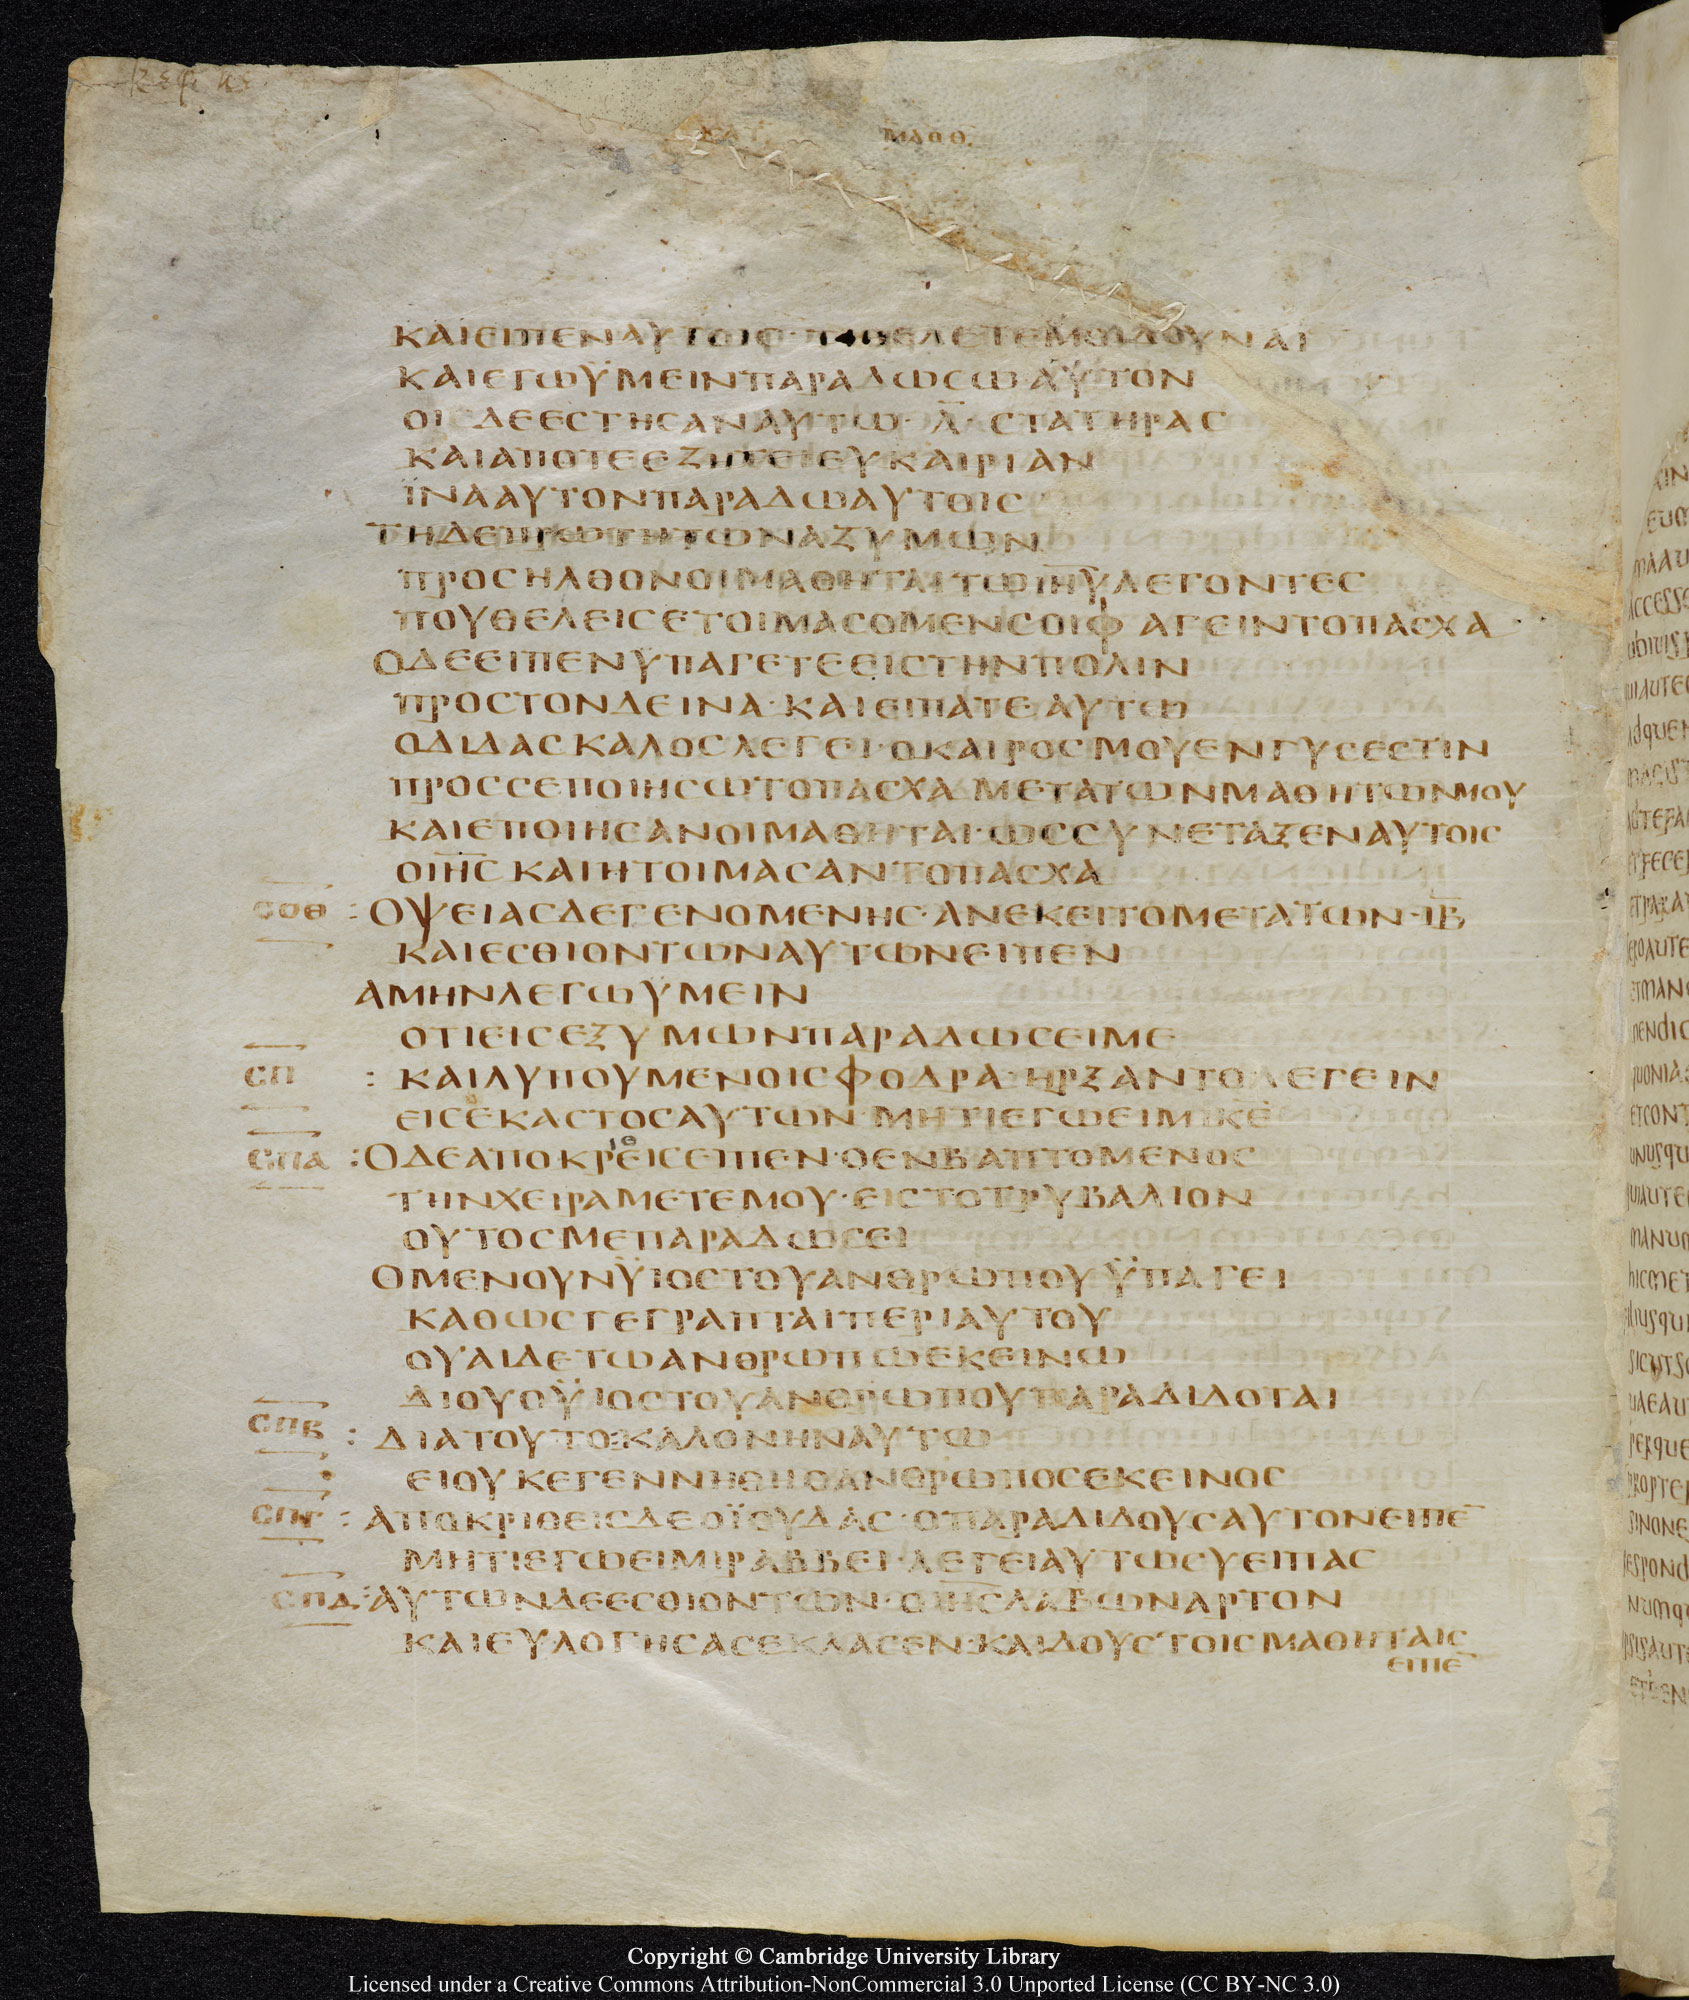 ΚΑΤ ΜΑΘΘ.
ΚΑΙΕΙΠΕΝΑΥΤΟΙϹ· ΤΙΘΕΛΕΤΕΜΟΙΔΟΥΝΑΙ
ΚΑΙΕΓΩΫΜΕΙΝΠΑΡΑΔΩϹΩΑΥΤΟΝ
ΟΙΔΕΕϹΤΗϹΑΝΑΥΤΩ· Λ̅· ϹΤΑΤΗΡΑϹ
ΚΑΙΑΠΟΤΕΕΖΗΤΕΙΕΥΚΑΙΡΙΑΝ
ΪΝΑΑΥΤΟΝΠΑΡΑΔΩΑΥΤΟΙϹ
ΤΗΔΕΠΡΩΤΗΤΩΝΑΖΥΜΩΝ
ΠΡΟϹΗΛΘΟΝΟΙΜΑΘΗΤΑΙΤΩΙΗΥ̅ΛΕΓΟΝΤΕϹ
ΠΟΥΘΕΛΕΙϹΕΤΟΙΜΑϹΟΜΕΝϹΟΙΦΑΓΕΙΝΤΟΠΑϹΧΑ
ΟΔΕΕΙΠΕΝΫΠΑΓΕΤΕΕΙϹΤΗΝΠΟΛΙΝ
ΠΡΟϹΤΟΝΔΕΙΝΑ· ΚΑΙΕΙΠΑΤΕΑΥΤΩ
ΟΔΙΔΑϹΚΑΛΟϹΛΕΓΕΙ· ΟΚΑΙΡΟϹΜΟΥΕΝΓΥϹΕϹΤΙΝ
ΠΡΟϹϹΕΠΟΙΗϹΩΤΟΠΑϹΧΑ ΜΕΤΑΤΩΝΜΑΘΗΤΩΝΜΟΥ
ΚΑΙΕΠΟΙΗϹΑΝΟΙΜΑΘΗΤΑΙ· ΩϹϹΥΝΕΤΑΞΕΝΑΥΤΟΙϹ
ΟΙΗϹ̅ΚΑΙΗΤΟΙΜΑϹΑΝΤΟΠΑϹΧΑ
ϹΟΘ : ΟΨΕΙΑϹΔΕΓΕΝΟΜΕΝΗϹ· ΑΝΕΚΕΙΤΟΜΕΤΑΤΩΝ· ΙΒ̅
ΚΑΙΕϹΘΙΟΝΤΩΝΑΥΤΩΝΕΙΠΕΝ
ΑΜΗΝΛΕΓΩΫΜΕΙΝ
ΟΤΙΕΙϹΕΞΥΜΩΝΠΑΡΑΔΩϹΕΙΜΕ
ϹΠ : ΚΑΙΛΥΠΟΥΜΕΝΟΙϹΦΟΔΡΑ· ΗΡΞΑΝΤΟΛΕΓΕΙΝ
ΕΙϹΕΚΑϹΤΟϹΑΥΤΩΝ· ΜΗΤΙΕΓΩΕΙΜΙΚΕ̅
ϹΠΑ : ΟΔΕΑΠΟΚΡιθΕΙϹΕΙΠΕΝ· ΟΕΝΒΑΠΤΟΜΕΝΟϹ
ΤΗΝΧΕΙΡΑΜΕΤΕΜΟΥ· ΕΙϹΤΟΤΡΥΒΑΛΙΟΝ
ΟΥΤΟϹΜΕΠΑΡΑΔΩϹΕΙ
ΟΜΕΝΟΥΝΫΙΟϹΤΟΥΑΝΘΡΩΠΟΥΫΠΑΓΕΙ
ΚΑΘΩϹΓΕΓΡΑΠΤΑΙΠΕΡΙΑΥΤΟΥ
ΟΥΑΙΔΕΤΩΑΝΘΡΩΠΩΕΚΕΙΝΩ
ΔΙΟΥΟΫΙΟϹΤΟΥΑΝΘΡΩΠΟΥΠΑΡΑΔΙΔΟΤΑΙ
ϹΠΒ : ΔΙΑΤΟΥΤΟ·ΚΑΛΟΝΗΝΑΥΤΩ
ΕΙΟΥΚΕΓΕΝΝΗΘΗΟΑΝΘΡΩΠΟϹΕΚΕΙΝΟϹ
ϹΠΓ : ΑΠΟΚΡΙΘΕΙϹΔΕΟΪΟΥΔΑϹ· ΟΠΑΡΑΔΙΔΟΥϹΑΥΤΟΝΕΙΠΕ̅
ΜΗΤΙΕΓΩΕΙΜΙΡΑΒΒΕΙ· ΛΕΓΕΙΑΥΤΩϹΥΕΙΠΑϹ
ϹΠΔ : ΑΥΤΩΝΔΕΕϹΘΙΟΝΤΩΝ· ΟΙΗϹ̅ΛΑΒΩΝΑΡΤΟΝ
ΚΑΙΕΥΛΟΓΗϹΑϹΕΚΛΑϹΕΝ·ΚΑΙΔΟΥϹΤΟΙϹΜΑΘΗΤΑΙϹ
ΕΙΠΕ̅
Copyright © Cambridge University Library
Licensed under a Creative Commons Attribution-NonCommercial 3.0 Unported License (CC BY-NC 3.0)